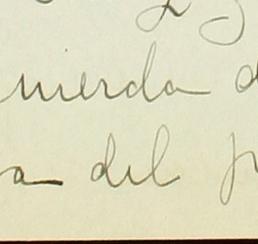 uierda d
a del p